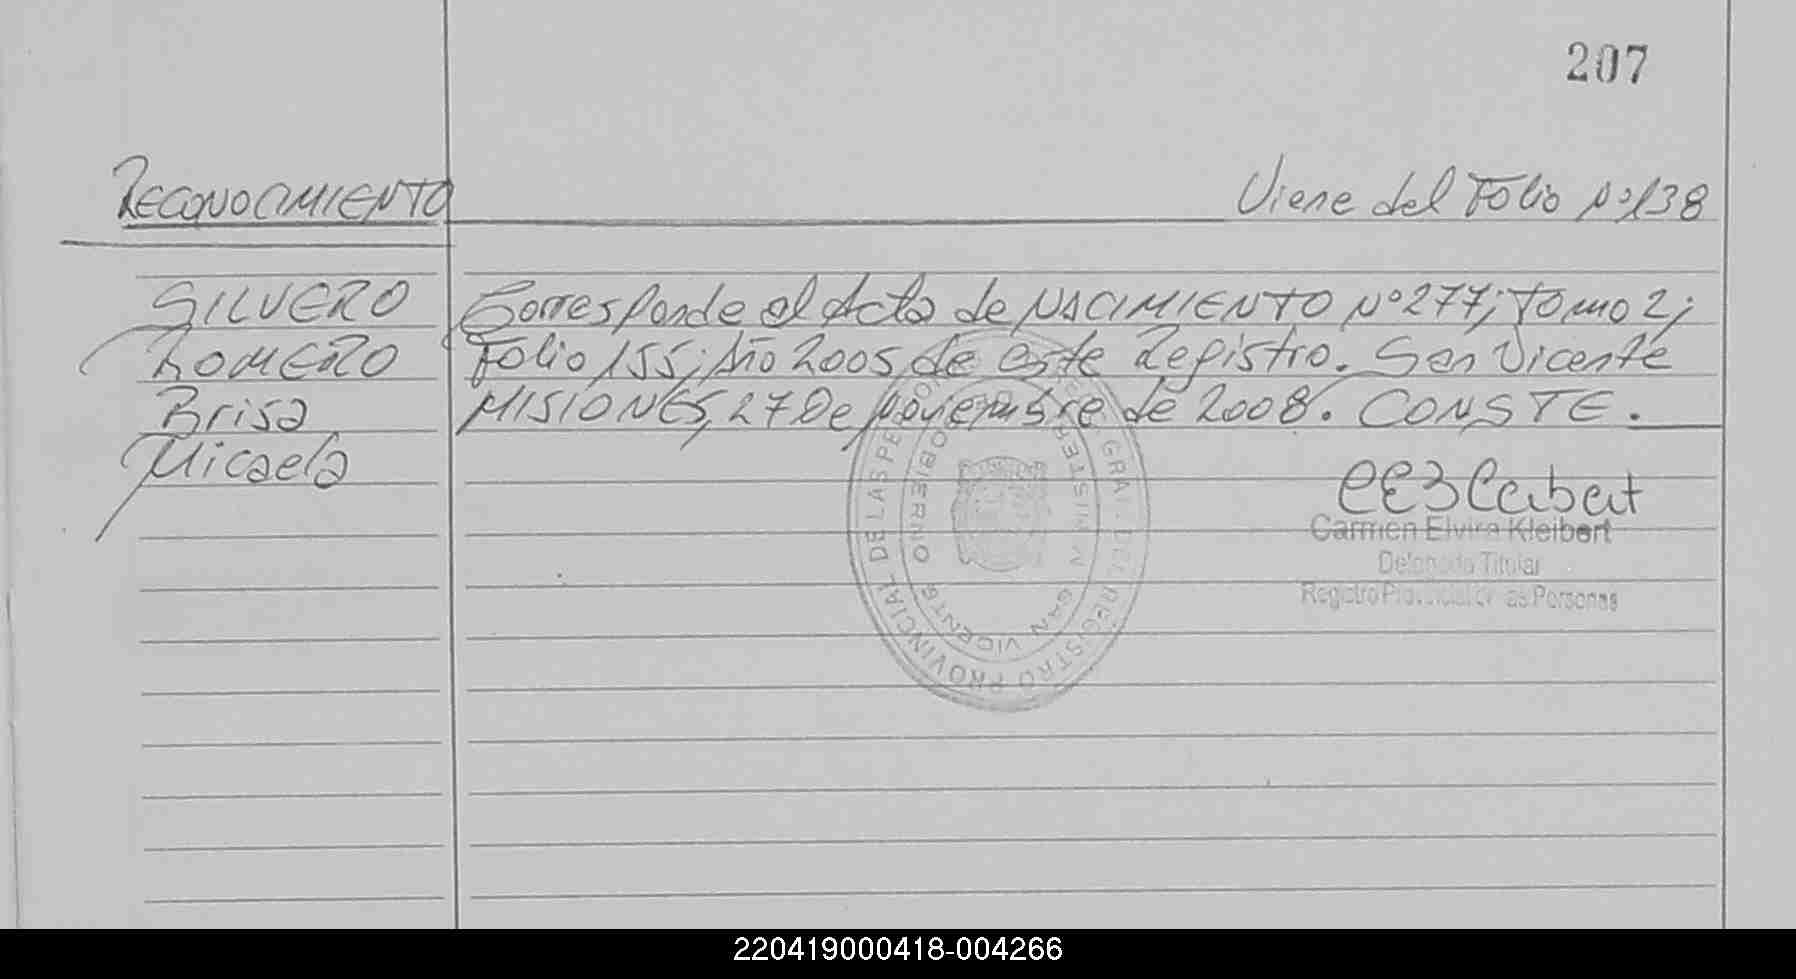 207
RECONOCIMIENTO
Viene del Folio Nº 138
SILVERO
ROMERO
Brisa
Micaela
Corresponde al Acta de NACIMIENTO Nº 277; Tomo 2;
Folio 155; Año 2005 de este Registro. San Vicente
MISIONES, 27 De Noviembre de 2008. CONSTE.
Carmen Elvira Kleibert
Delegada Titular
Registro Provincial de las Personas
REGISTRO PROVINCIAL DE LAS PE
GRAL DEL
GOBIERNO
MINISTER
SAN VICENTE
220419000418-004266